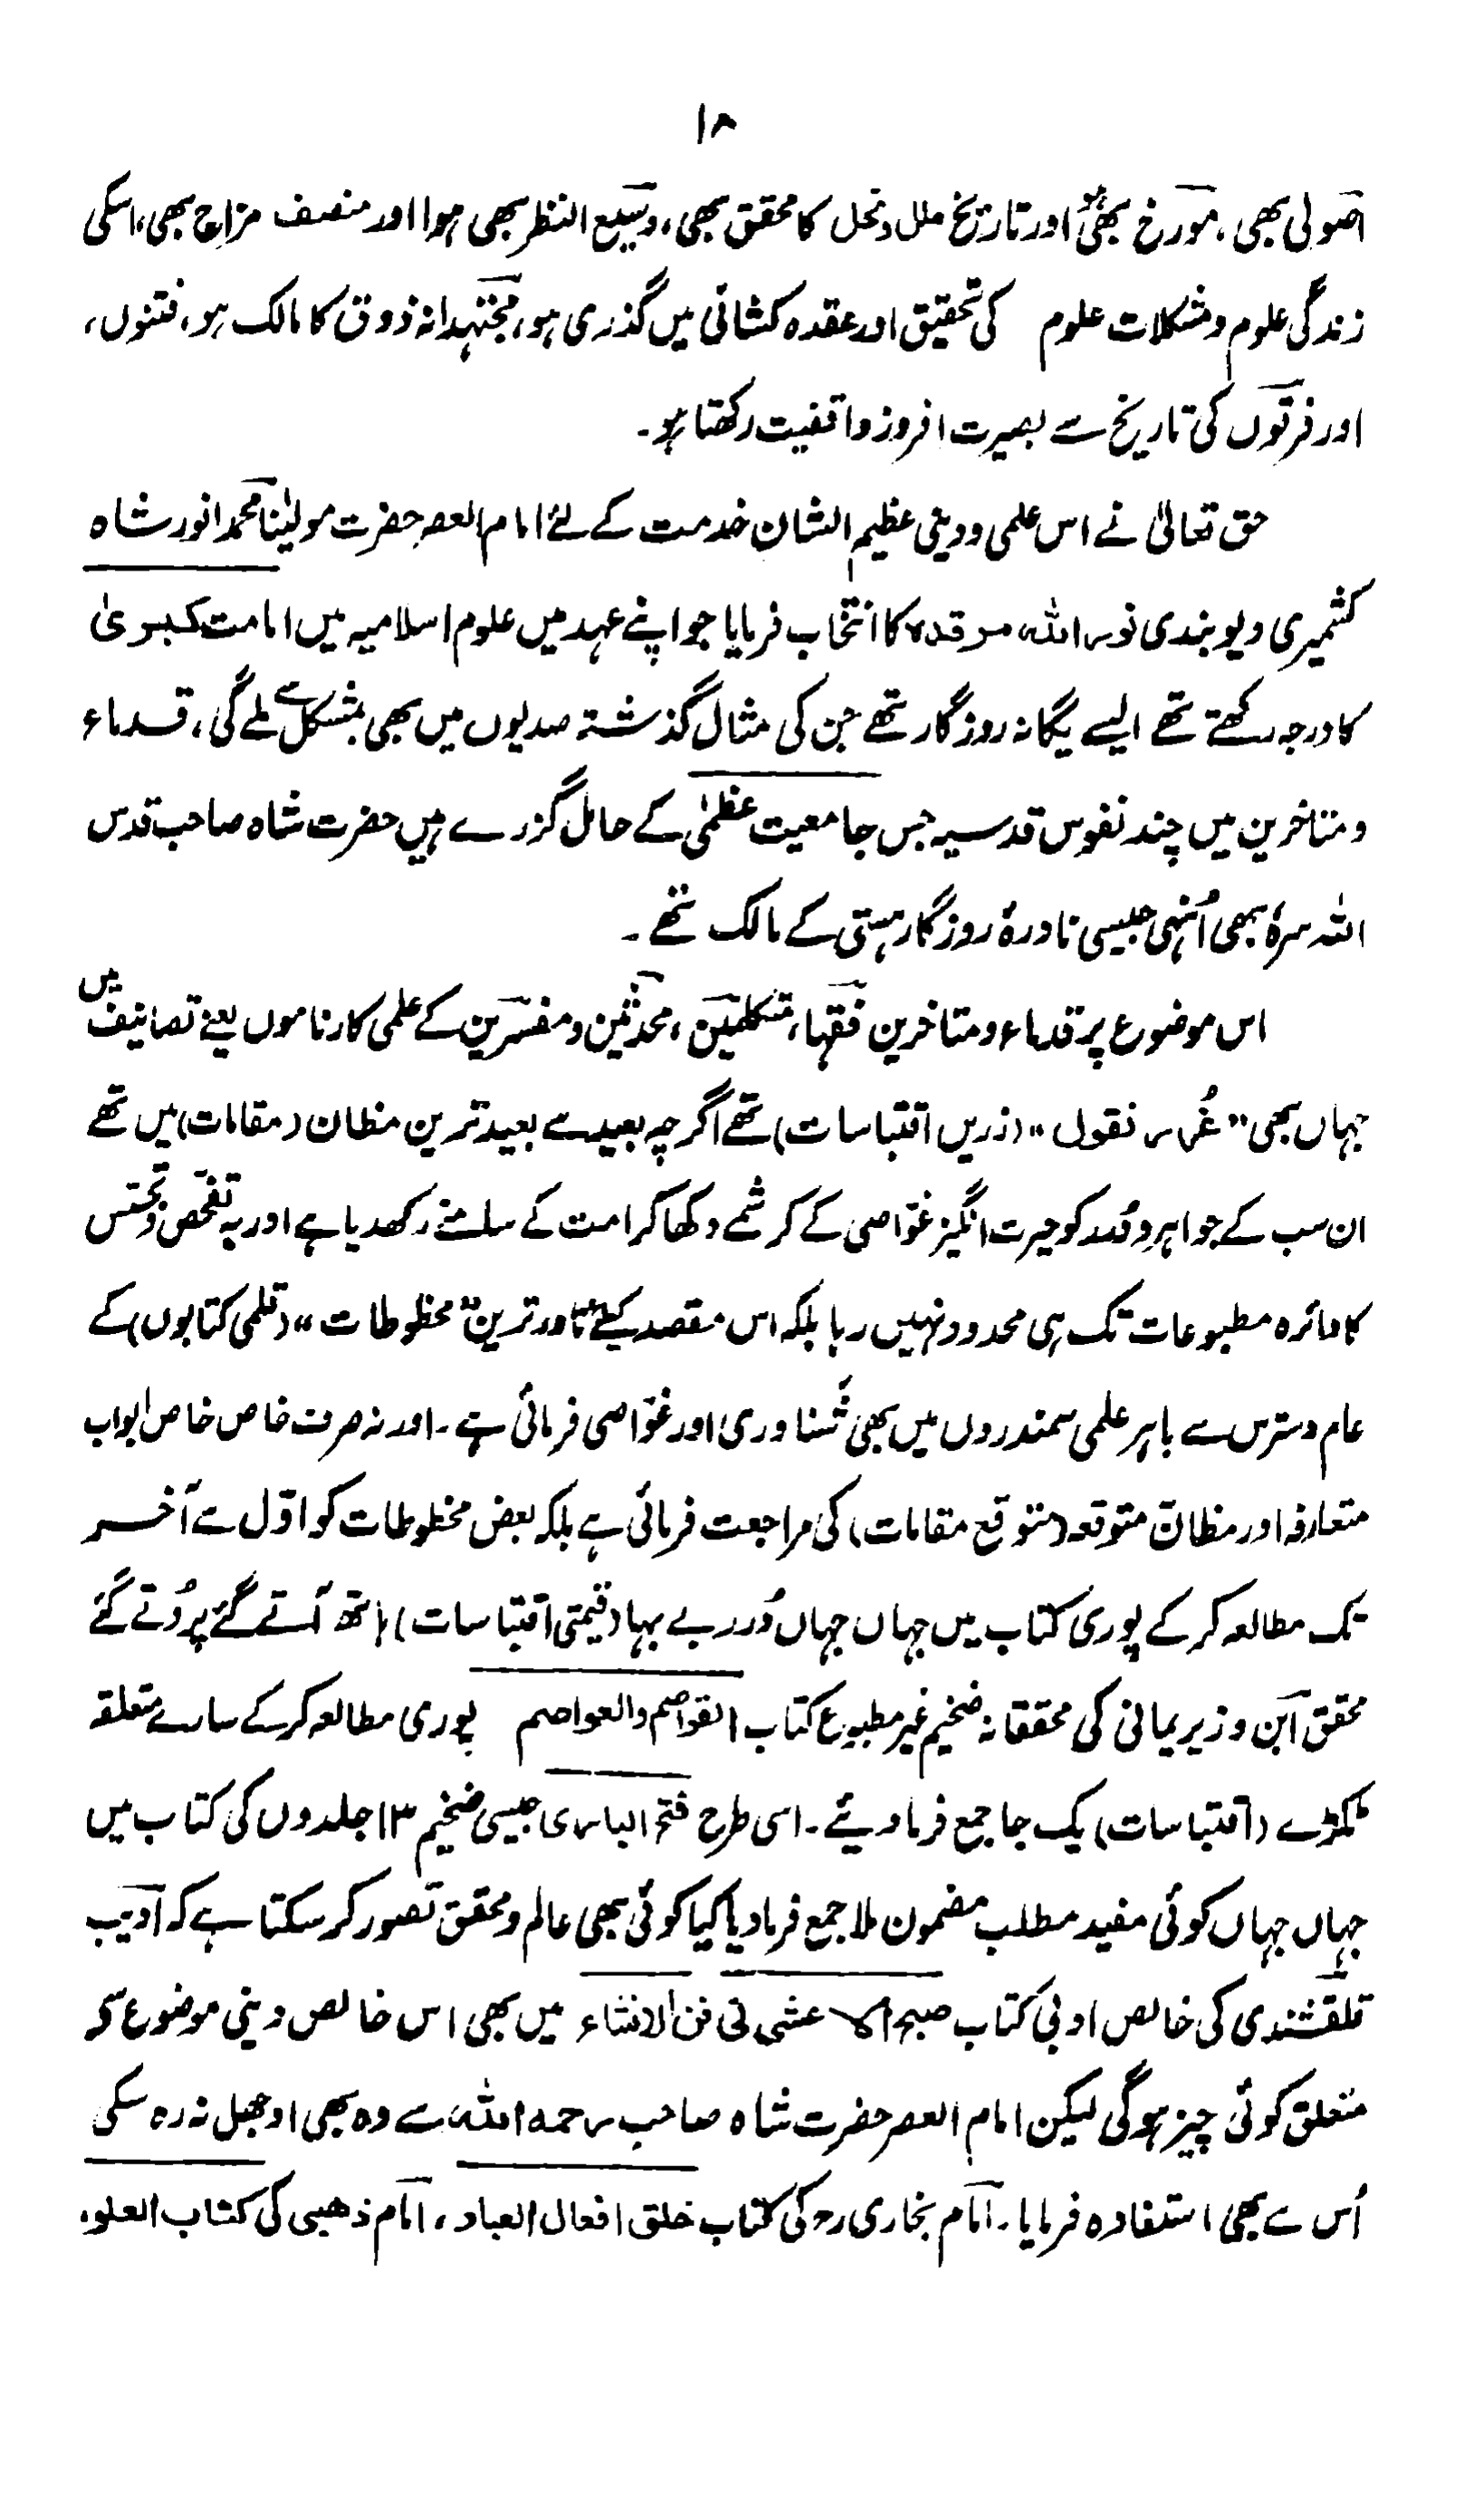 ۱۸
اصولی بھی، مورخ بھی اور تاریخ ملل و نحل کا محقق بھی، وسیع النظر بھی ہوا اور منصف مزاج بھی، اسکی
زندگی علوم و مشکلات علوم کی تحقیق اور عقدہ کشائی میں گذری ہو، مجتہدانہ ذوق کا مالک ہو، فتنوں،
اور فرقوں کی تاریخ سے بصیرت افروز واقفیت رکھتا ہو۔
حق تعالیٰ نے اس علمی و دینی عظیم الشان خدمت کے لئے امام العصر حضرت مولیٰنا محمد انور شاہ
کشمیری دیوبندی نور اللہ مرقدہ کا انتخاب فرمایا جو اپنے عہد میں علوم اسلامیہ میں امامت کبریٰ
کا درجہ رکھتے تھے ایسے یگانہ روزگار تھے جن کی مثال گذشتہ صدیوں میں بھی بمشکل سے ملے گی، قدماء
و متاخرین میں چند نفوس قدسیہ جس جامعیت عظمیٰ کے حامل گزرے ہیں حضرت شاہ صاحب قدس
اللہ سرہٗ بھی اُنہی جیسی نادرۂ روزگار ہستی کے مالک تھے۔
اس موضوع پر قدماء و متاخرین فقہا، متکلمین، محدثین و مفسرین کے علمی کارناموں یعنے تصانیف میں
جہاں بھی "غُرر نقول" (زریں اقتباسات) تھے اگرچہ بعید سے بعید ترین مظان (مقامات) میں تھے
ان سب کے جواہر و دُرر کو حیرت انگیز غواصی کے کرشمے دکھا کر امت کے سامنے رکھدیا ہے اور یہ تفحص و تجسس
کا دائرہ مطبوعات تک ہی محدود نہیں رہا بلکہ اس مقصد کیلئے نادر ترین "مخطوطات" (قلمی کتابوں) کے
عام دسترس سے باہر علمی سمندروں میں بھی شناوری اور غواصی فرمائی ہے۔ اور نہ صرف خاص خاص ابواب
متعارفہ اور مظان متوقعہ (متوقع مقامات) کی مراجعت فرمائی ہے بلکہ بعض مخطوطات کو اوّل سے آخر
تک مطالعہ کر کے پوری کتاب میں جہاں جہاں دُرر بے بہا (قیمتی اقتباسات) ہاتھ آتے گئے پروتے گئے
محقق ابن وزیر یمانی کی محققانہ ضخیم غیر مطبوع کتاب القواصم والعواصم پوری مطالعہ کر کے سارے متعلقہ
ٹکڑے (اقتباسات) یک جا جمع فرما دیئے۔ اسی طرح فتح الباری جیسی ضخیم ۱۳ جلدوں کی کتاب میں
جہاں جہاں کوئی مفید مطلب مضمون ملا جمع فرما دیا کیا کوئی بھی عالم و محقق تصور کر سکتا ہے کہ ادیب
قلقشندی کی خالص ادبی کتاب صبح الاعشی فی فن الانشاء میں بھی اس خالص دینی موضوع سے
متعلق کوئی چیز ہوگی لیکن امام العصر حضرت شاہ صاحب رحمہ اللہ سے وہ بھی اوجھل نہ رہ سکی
اُس سے بھی استفادہ فرمایا۔ امام بخاری رح کی کتاب خلق افعال العباد، امام ذھبی کی کتاب العلو،